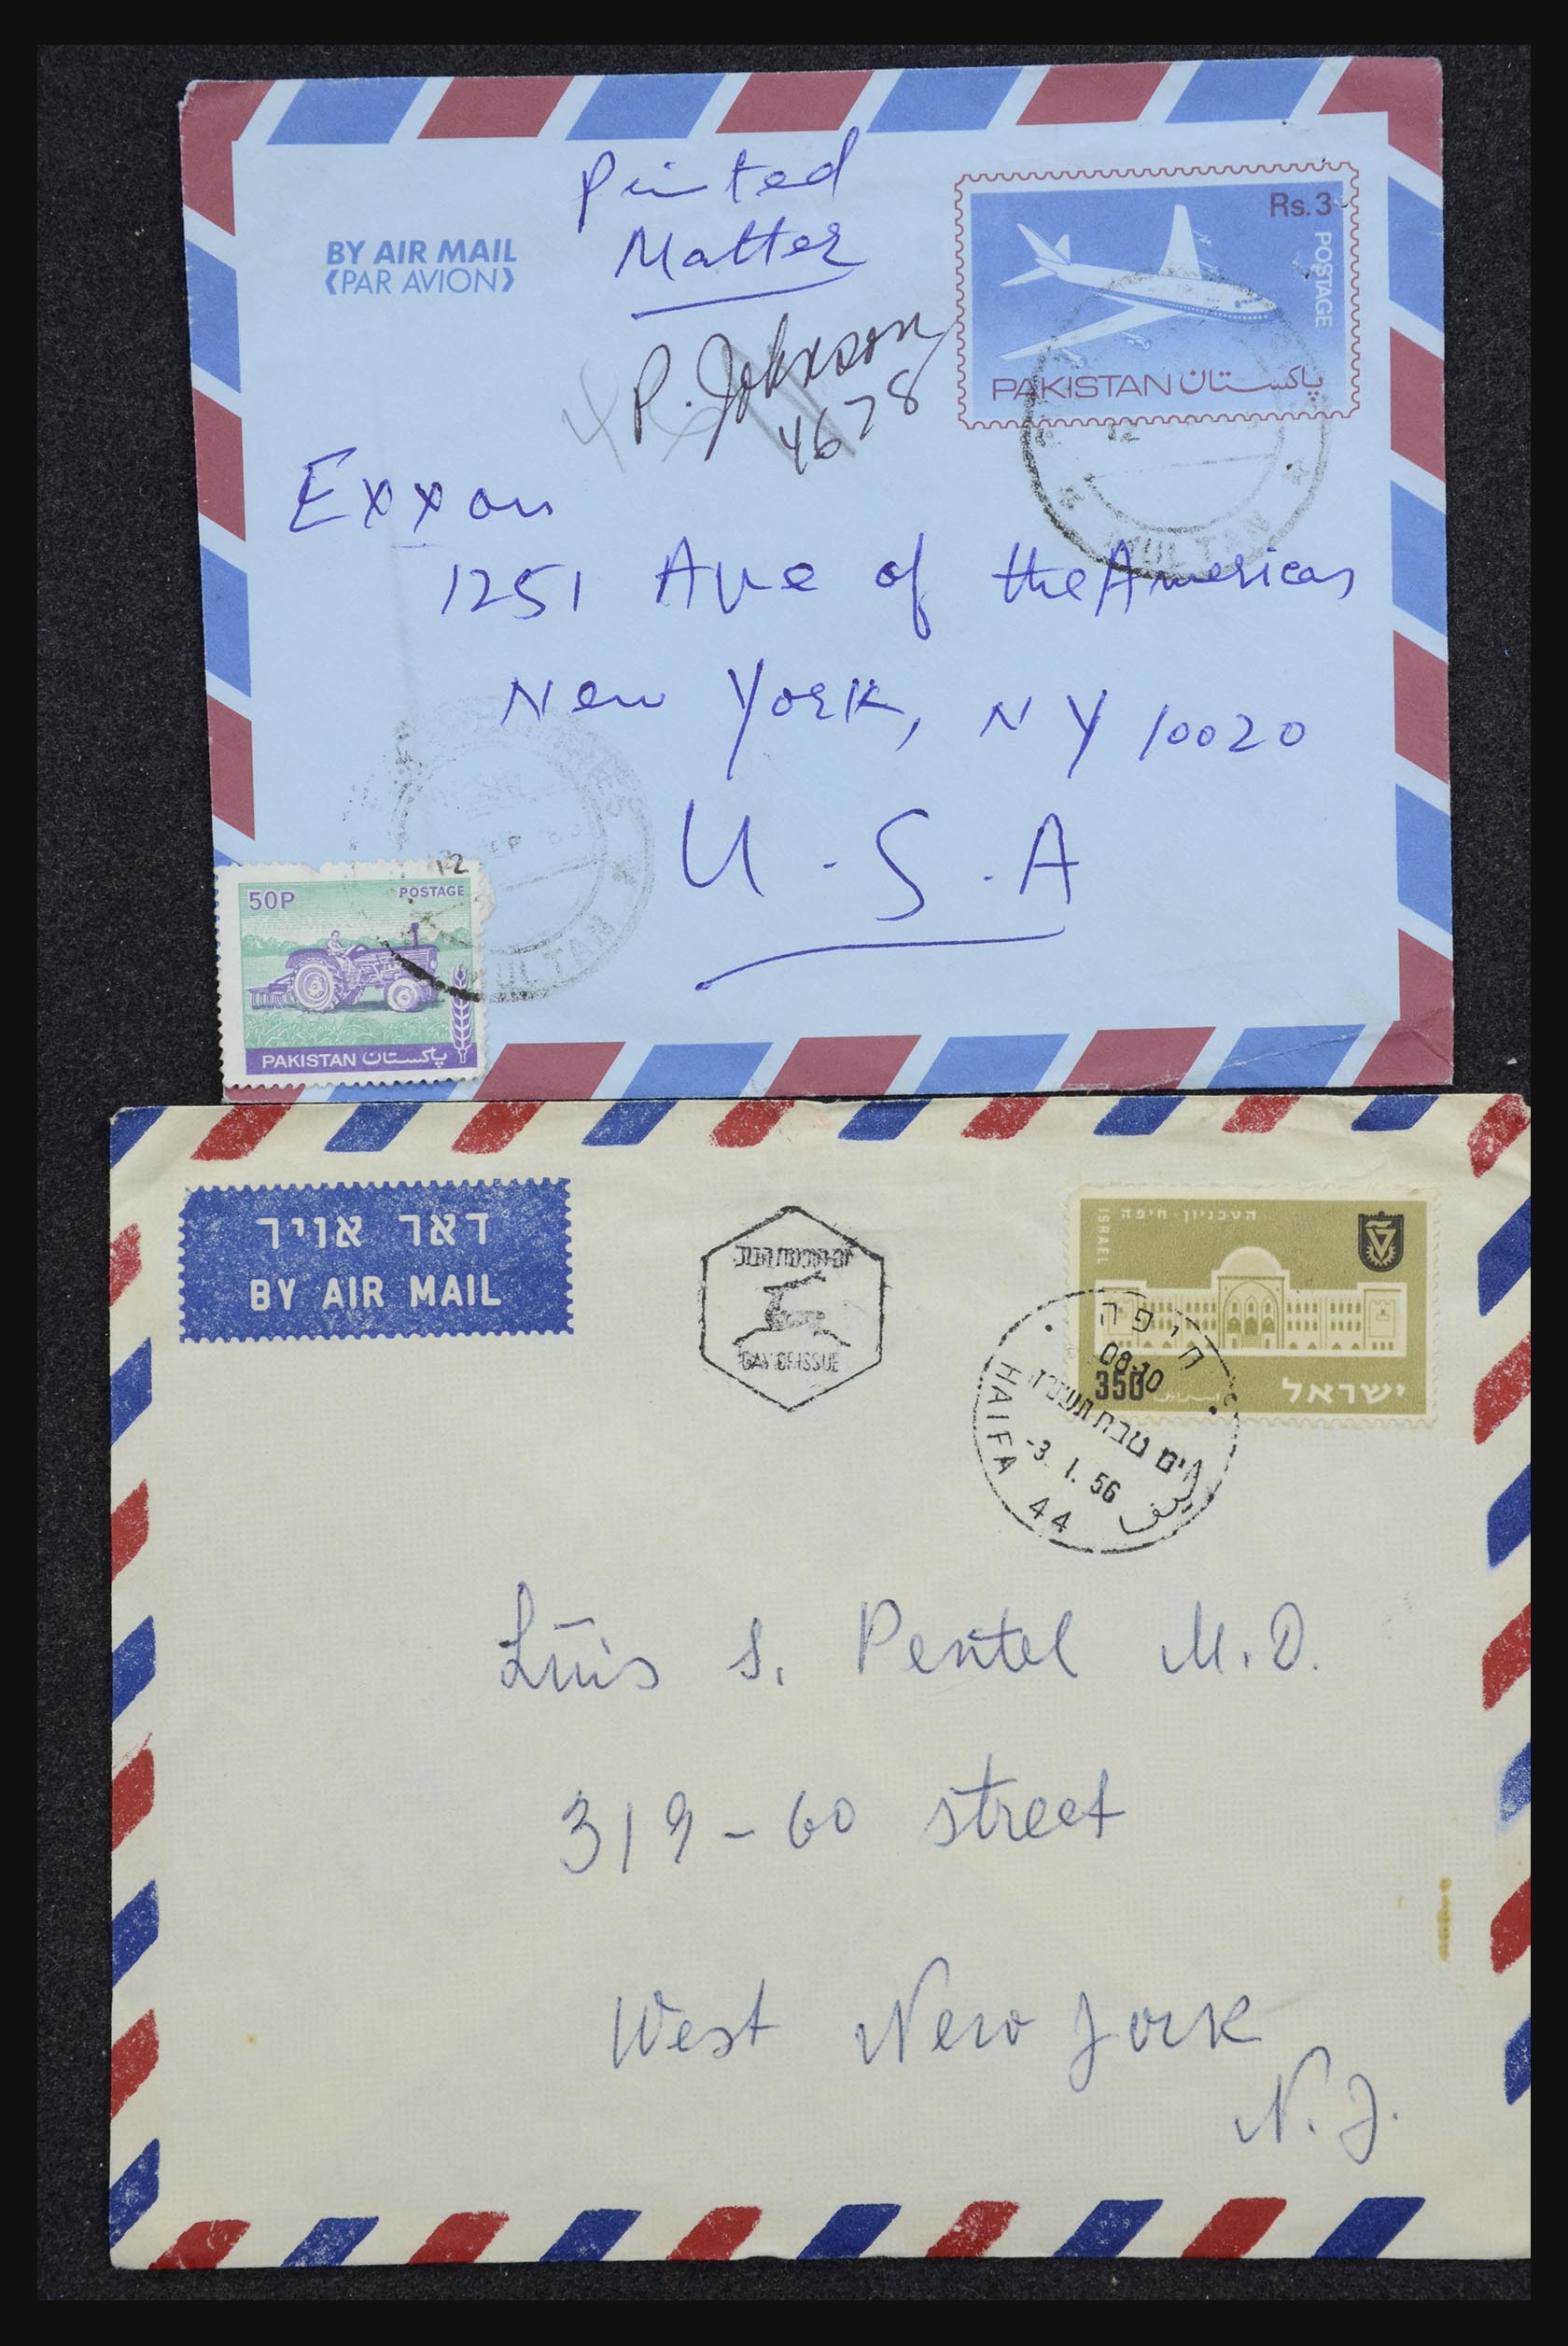 Printed
Matter
BY AIR MAIL
(PAR AVION)
Rs.3
POSTAGE
PAKISTAN پاکستان
P. Johnson
4678
12
MULTAN
Exxon
1251 Ave of the Americas
New York, NY 10020
U.S.A
12
MULTAN
50P POSTAGE
PAKISTAN پاکستان
דאר אויר
BY AIR MAIL
DAY OF ISSUE
הטכניון · חיפה
ISRAEL
350
ישראל
חיפה
08-10
-3. 1. 56
HAIFA 44
Luis S. Pentel M.D.
319-60 street
West New York
N.J.